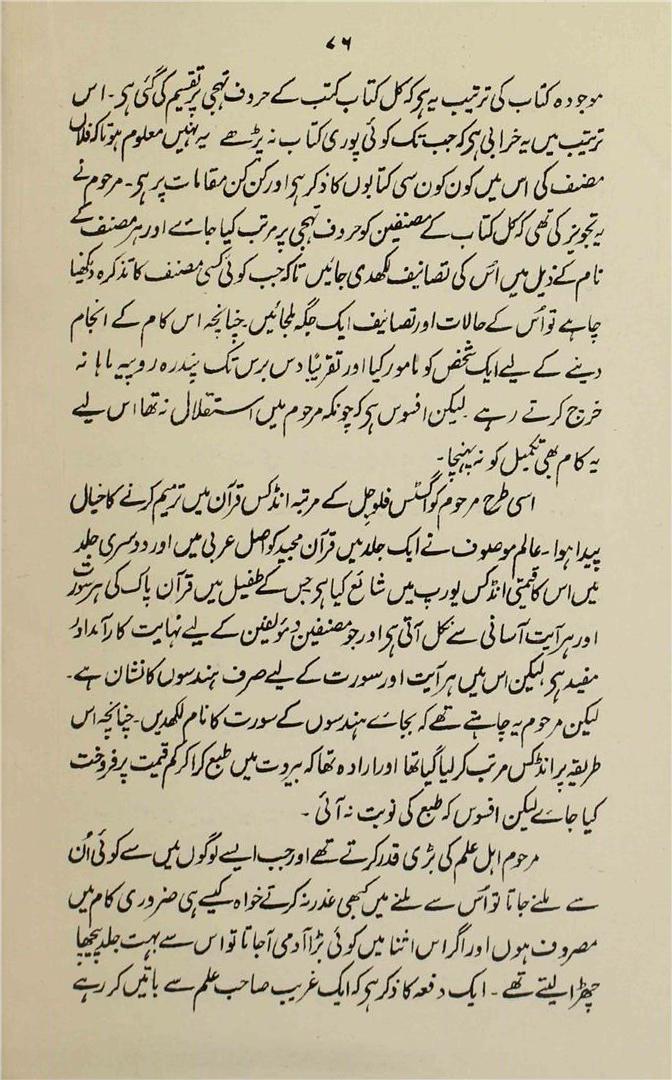 ۷۶
موجودہ کتاب کی ترتیب یہ ہی کہ کل کتاب کتب کے حروف تہجی پر تقسیم کی گئی ہی۔ اس
ترتیب میں یہ خرابی ہی کہ جب تک کوئی پوری کتاب نہ پڑھے یہ نہیں معلوم ہوتا کہ فلاں
مصنف کی اس میں کون کون سی کتابوں کا ذکر ہی اور کن کن مقامات پر ہی۔ مرحوم نے
یہ تجویز کی تھی کہ کل کتاب کے مصنفین کو حروف تہجی پر مرتب کیا جاے اور ہر مصنف کے
نام کے ذیل میں اُس کی تصانیف لکھدی جائیں تاکہ جب کوئی کسی مصنف کا تذکرہ دیکھنا
چاہے تو اُس کے حالات اور تصانیف ایک جگہ ملجائیں۔ چنانچہ اس کام کے انجام
دینے کے لیے ایک شخص کو مامور کیا اور تقریبًا دس برس تک پندرہ روپیہ ماہانہ
خرچ کرتے رہے لیکن افسوس ہی کہ چونکہ مرحوم میں استقلال نہ تھا اس لیے
یہ کام بھی تکمیل کو نہ پہنچا۔
اسی طرح مرحوم کو اگسٹس فلوجل کے مرتبہ انڈکس قرآن میں ترمیم کرنے کا خیال
پیدا ہوا۔ عالم موصوف نے ایک جلد میں قرآن مجید کو اصل عربی میں اور دوسری جلد
میں اس کا قیمتی انڈکس یورپ میں شائع کیا ہی جس کے طفیل میں قرآن پاک کی ہر سورت
اور ہر آیت آسانی سے نکل آتی ہی اور جو مصنفین و مؤلفین کے لیے نہایت کارآمد اور
مفید ہی لیکن اس میں ہر آیت اور سورت کے لیے صرف ہندسوں کا نشان ہے۔
لیکن مرحوم یہ چاہتے تھے کہ بجاے ہندسوں کے سورت کا نام لکھدیں۔ چنانچہ اس
طریقہ پر انڈکس مرتب کر لیا گیا تھا اور ارادہ تھا کہ بیروت میں طبع کرا کر کم قیمت پر فروخت
کیا جاے لیکن افسوس کہ طبع کی نوبت نہ آئی۔
مرحوم اہل علم کی بڑی قدر کرتے تھے اور جب ایسے لوگوں میں سے کوئی اُن
سے ملنے جاتا تو اُس سے ملنے میں کبھی عذر نہ کرتے خواہ کیسے ہی ضروری کام میں
مصروف ہوں اور اگر اس اثنا میں کوئی بڑا آدمی آجاتا تو اس سے بہت جلد پیچھا
چھڑا لیتے تھے۔ ایک دفعہ کا ذکر ہی کہ ایک غریب صاحب علم سے باتیں کر رہے